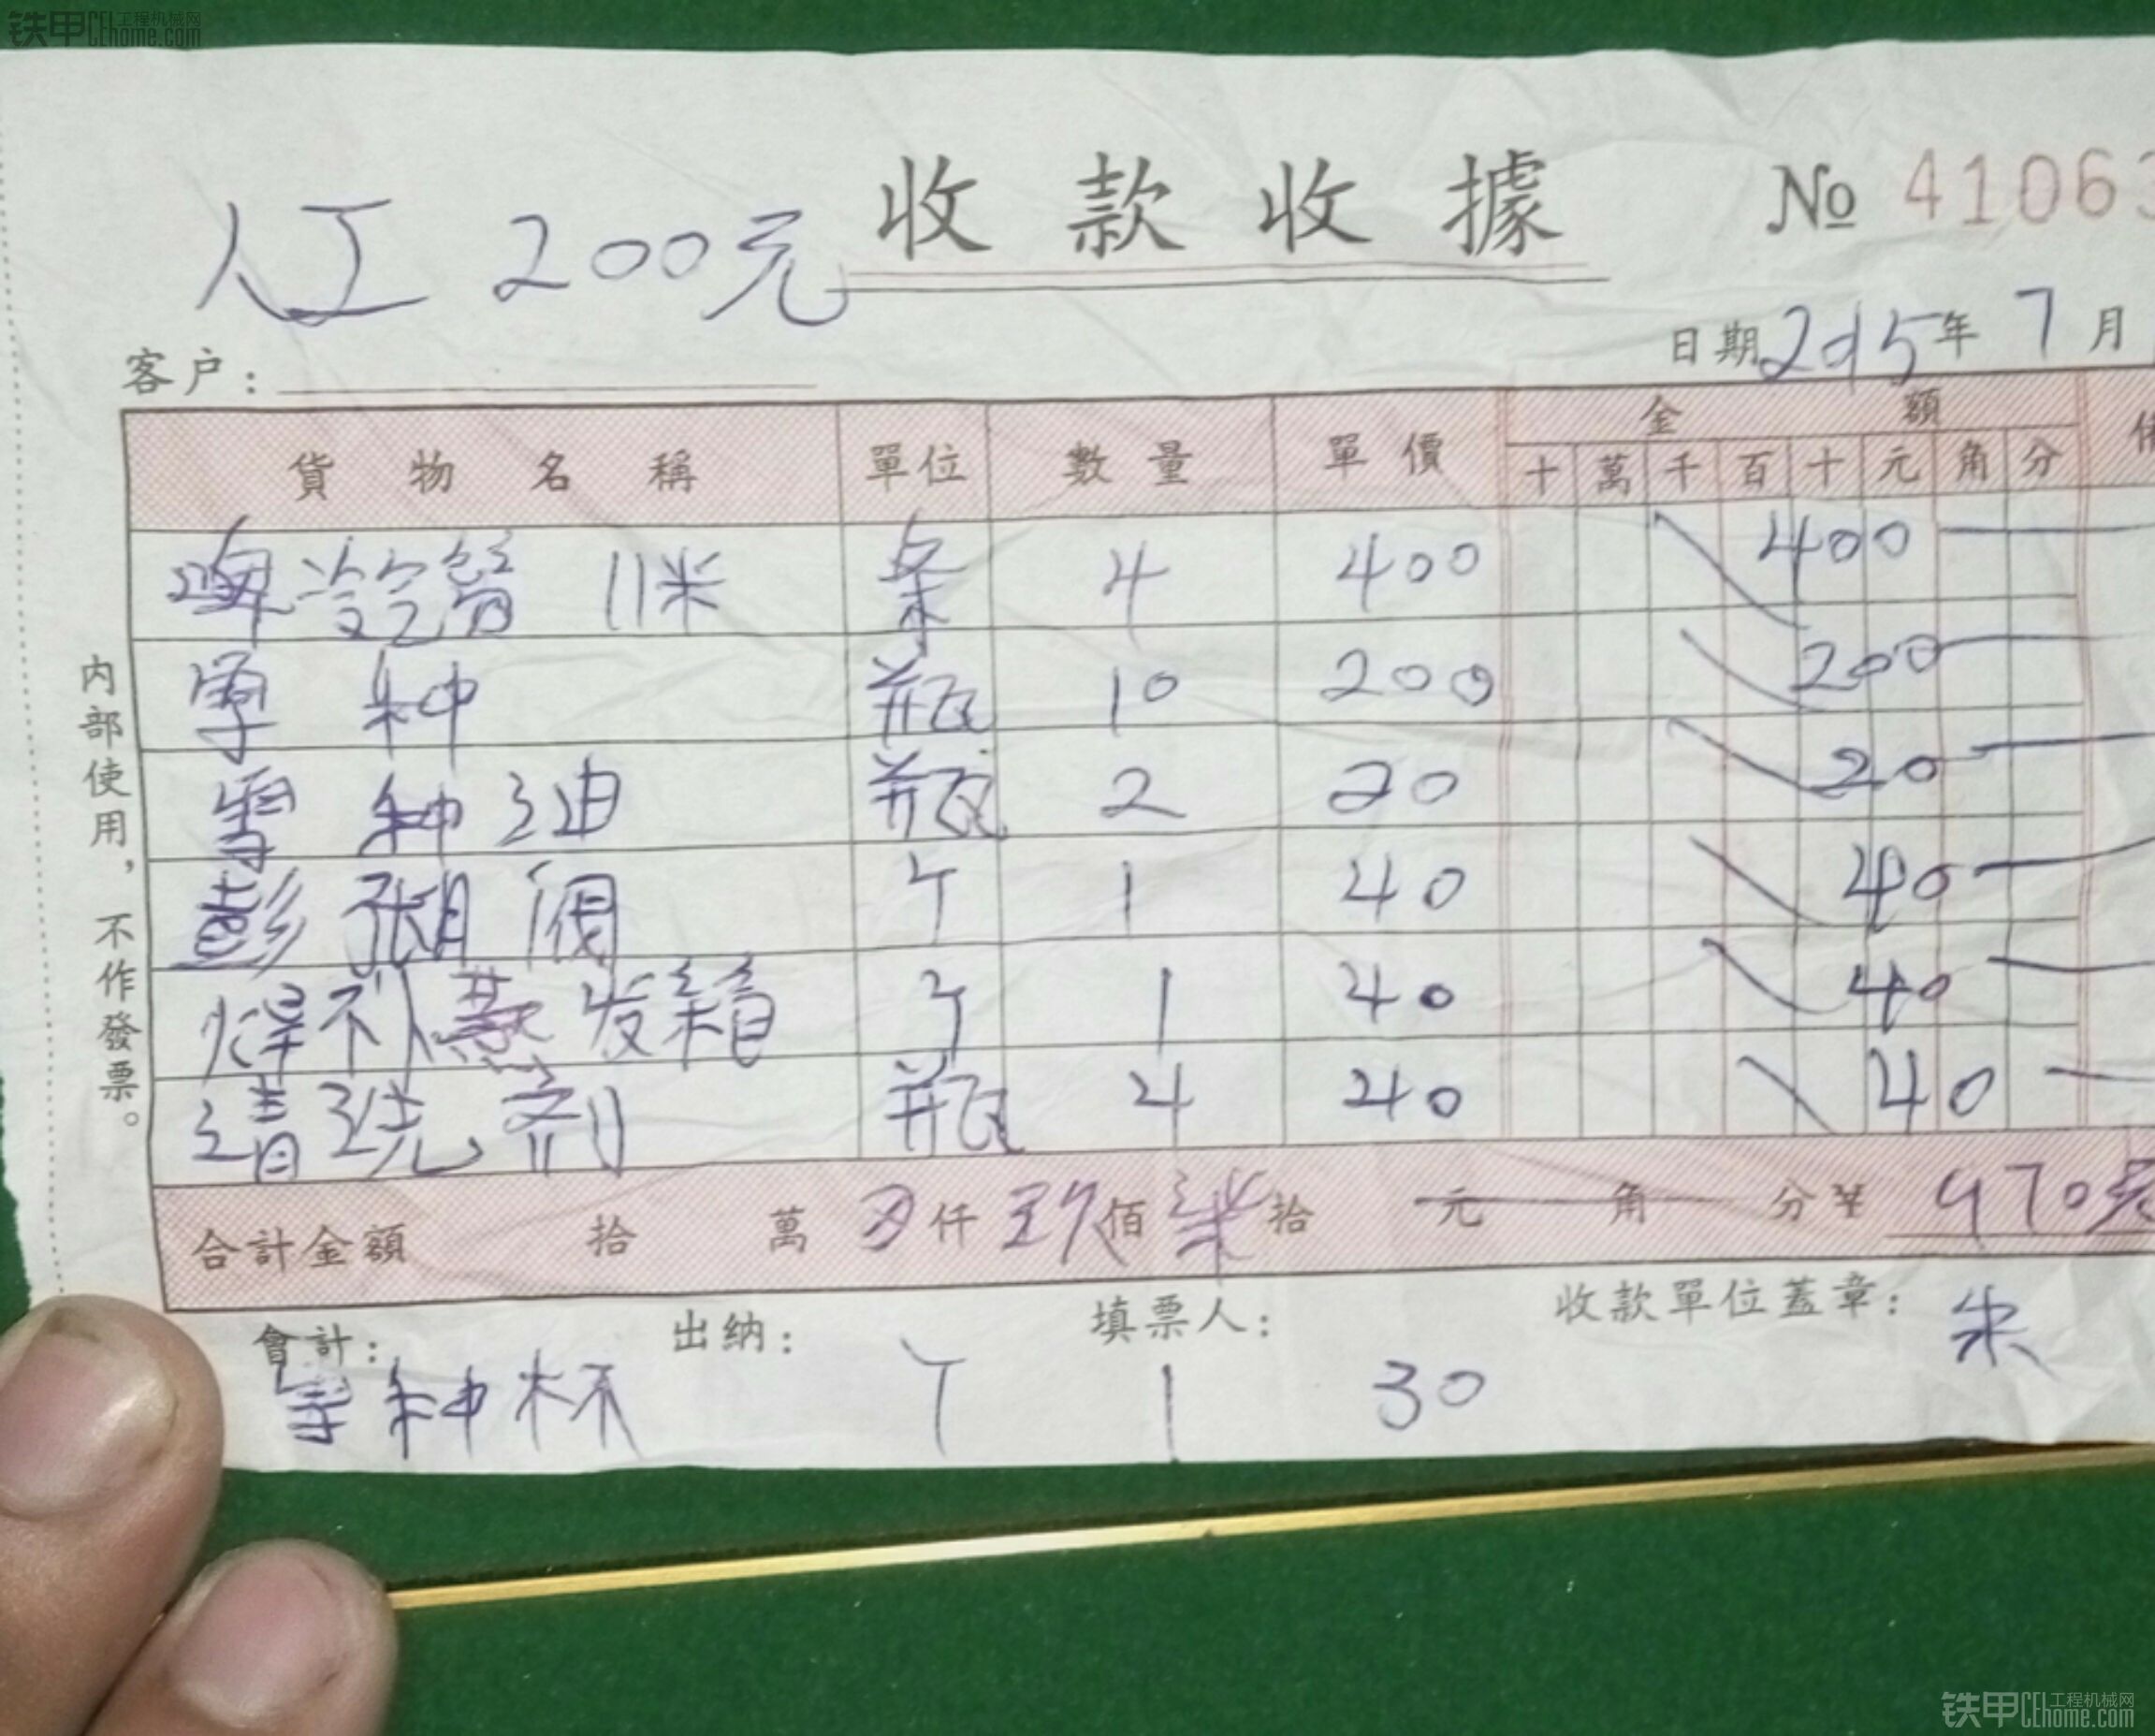 铁甲CEhome.com 工程机械网
人工 200元 收款收據 № 41063
客户： 日期 2015年 7月
貨物名稱 單位 數量 單價 金額
十 萬 千 百 十 元 角 分
冷管 11米 条 4 400 400
雪种 瓶 10 200 200
雪种油 瓶 2 20 20
彭胀阀 个 1 40 40
焊补蒸发箱 个 1 40 40
清洗剂 瓶 4 40 40
合計金額 拾 萬 仟 玖佰 柒拾 元 角 分 ¥ 970元
會計： 出纳： 填票人： 收款單位蓋章： 朱
雪种杯 个 1 30
内部使用，不作發票。
铁甲CEhome.com 工程机械网